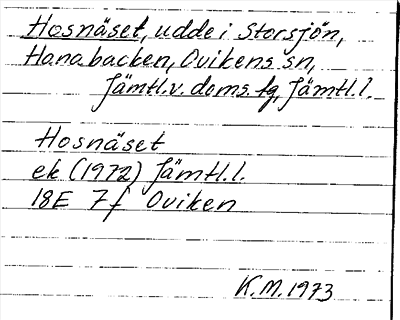 Hosnäset, udde i Storsjön,
Hanabacken, Ovikens sn,
Jämtl.v. doms. tg, Jämtl.l.
Hosnäset
ek (1972) Jämtl.l.
18E 7f Oviken
K.M. 1973